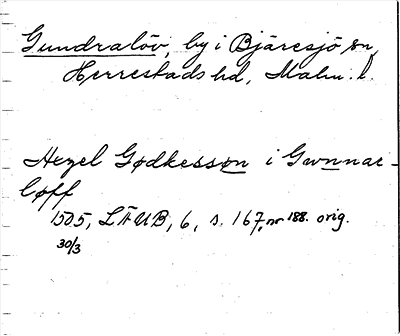 Gundralöv, by i Bjäresjö sn,
Herrestads hd, Malm. l.
Axel Gødkesson i Gwnnar-
løff
1505, LÄUB, 6, s. 167, nr 188. orig.
30/3